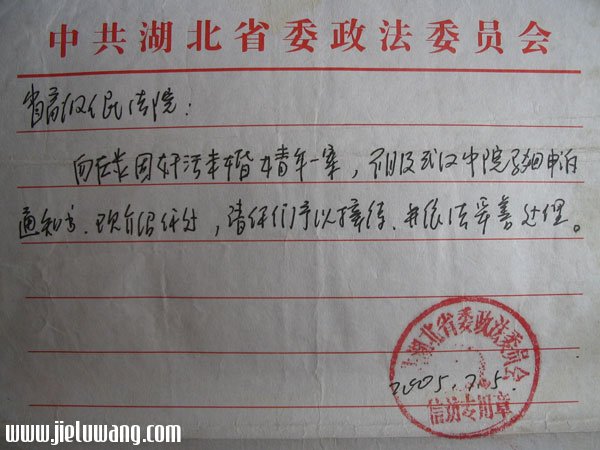 中共湖北省委政法委员会
省高级人民法院:
因奸污未婚女青年一案,不服武汉中院驳回申诉
通知书、现介绍你处,请你们予以接待、并依法妥善处理。
湖北省委政法委员会
2005.
信访专用章
www.jieluwang.com